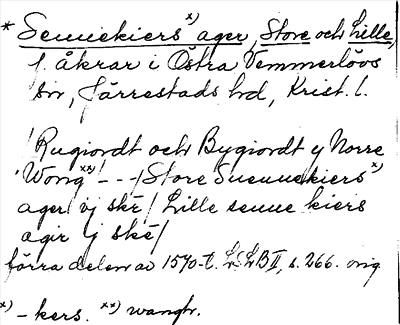 * Sennekiers x) ager, Store och Lille,
f. åkrar i Östra Vemmerlövs
sn, Järrestads hd, Krist. l.
'Rugiordt och Bygiordt y Norre
Wong xx) - - -/ Store Suennekiers x)
ager vj ské/ Lille senne kiers
agir ij ské/
förra delen av 1570-t. LSLB II, s. 266. orig
x) -kers. xx) wangh.